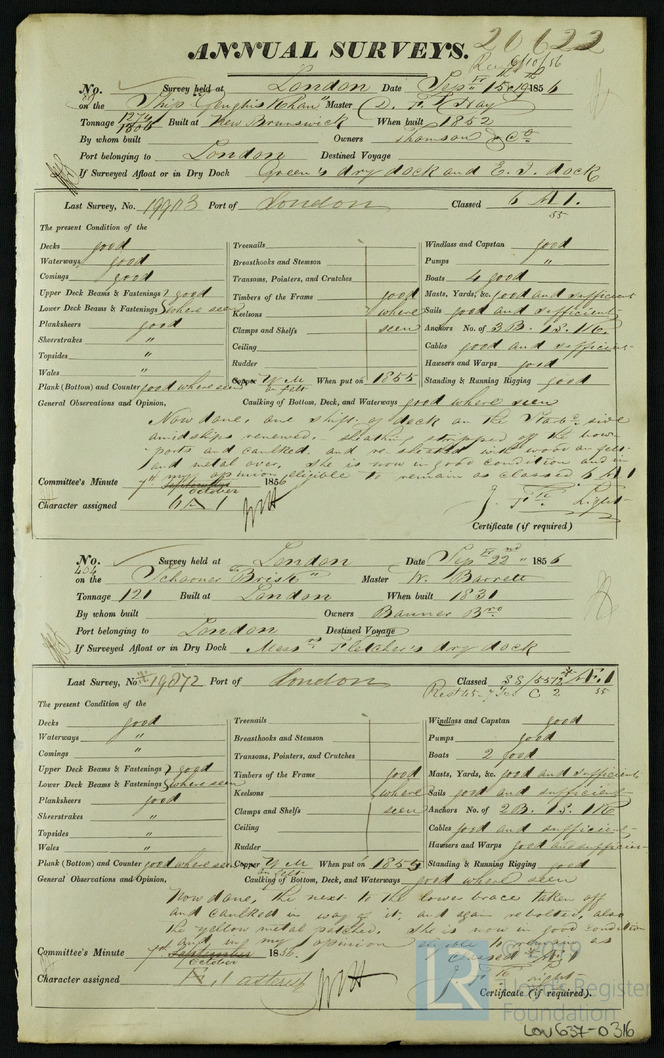 20622
ANNUAL SURVEYS.
6/10/56
No. Survey held at London Date Sep 15 & 19th 1856
on the Ship Genghis Khan Master D. F. Hay
Tonnage 1276 Built at New Brunswick When built 1852
By whom built Owners Thomson & Co
Port belonging to London Destined Voyage
If Surveyed Afloat or in Dry Dock Green's dry dock and E. I. dock
Last Survey, No. Port of London Classed 6 A 1.
55
The present Condition of the
Decks good Treenails Windlass and Capstan good
Waterways good Breasthooks and Stemson Pumps "
Comings good Transoms, Pointers, and Crutches Boats 4 good
Upper Deck Beams & Fastenings good Timbers of the Frame good Masts, Yards, &c. good and sufficient
Lower Deck Beams & Fastenings where seen Keelsons where Sails good and sufficient
Planksheers good Clamps and Shelfs seen Anchors No. of 3B. 1S. 1K.
Sheerstrakes " Ceiling Cables good and sufficient
Topsides " Rudder Hawsers and Warps good
Wales " Copper Y M on felt When put on 1855 Standing & Running Rigging good
Plank (Bottom) and Counter good where seen
General Observations and Opinion, Caulking of Bottom, Deck, and Waterways good where seen
Now done, one shift of deck on the Starbd side
amidships renewed. sheathing stripped off the bow
ports and caulked, and re sheathed with wood on felt
and metal over, She is now in good condition and in
my opinion eligible to remain as classed 6 A 1
Committee's Minute 7th September October 1856
Character assigned 6 A 1
J. Light
Certificate (if required)
No. 404 Survey held at London Date Sep 22nd 1856
on the Schooner "Brisk" Master W. Barrett
Tonnage 121 Built at London When built 1831
By whom built Owners Banner Bro
Port belonging to London Destined Voyage
If Surveyed Afloat or in Dry Dock Messrs Fletcher's dry dock
Last Survey, No. 19872 Port of London Classed
55
The present Condition of the
Decks good Treenails Windlass and Capstan good
Waterways " Breasthooks and Stemson Pumps good
Comings " Transoms, Pointers, and Crutches Boats 2 good
Upper Deck Beams & Fastenings good Timbers of the Frame good Masts, Yards, &c. good and sufficient
Lower Deck Beams & Fastenings where seen Keelsons where Sails good and sufficient
Planksheers good Clamps and Shelfs seen Anchors No. of 2B. 1S. 1K
Sheerstrakes " Ceiling Cables good and sufficient
Topsides " Rudder Hawsers and Warps good and sufficient
Wales " Copper Y M on felt When put on 1855 Standing & Running Rigging good
Plank (Bottom) and Counter good where seen
General Observations and Opinion, Caulking of Bottom, Deck, and Waterways good where seen
Now done, the next to the lower brace taken off
and caulked in way of it, and again rebolted, also
the yellow metal patched. She is now in good condition
and in my opinion eligible to remain as
classed
Committee's Minute 7th September October 1856.
Character assigned
J. Light
Certificate (if required).
© 2019
LR
Lloyd's Register
Foundation
LON637-0316